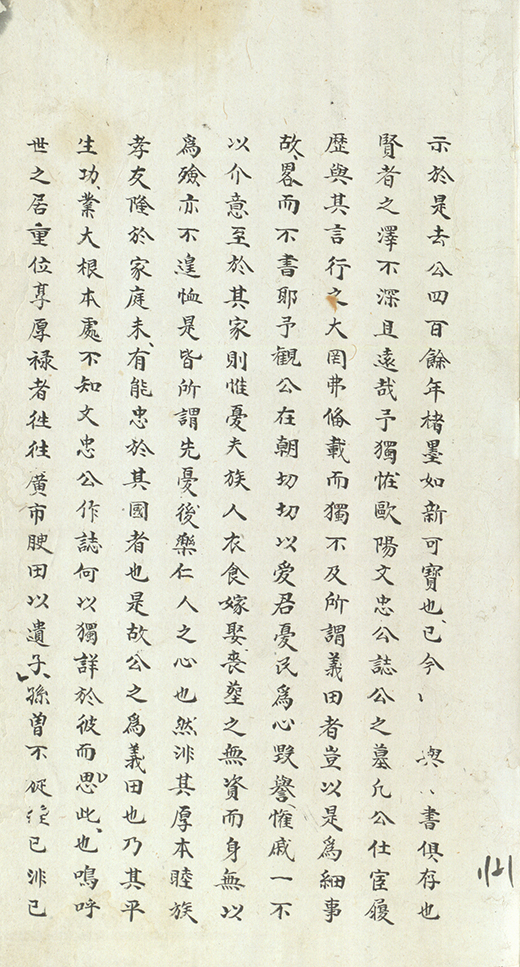 示於是去公四百餘年楮墨如新可寶也已今 與 書俱存也
賢者之澤不深且遠哉予獨恠歐陽文忠公誌公之墓凡公仕宦履
歴與其言行之大罔弗俻載而獨不及所謂義田者豈以是爲細事
故畧而不書耶予觀公在朝切切以爱君憂民爲心毀譽惟戚一不
以介意至於其家則惟憂夫族人衣食嫁娶喪塟之無資而身無以
爲殮亦不遑恤是皆所謂先憂後樂仁人之心也然非其厚本睦族
孝友隆於家庭未有能忠於其國者也是故公之爲義田也乃其平
生功業大根本處不知文忠公作誌何以獨詳於彼而思此也嗚呼
世之居重位享厚禄者徃徃廣市腴田以遺子孫曽不 已非已